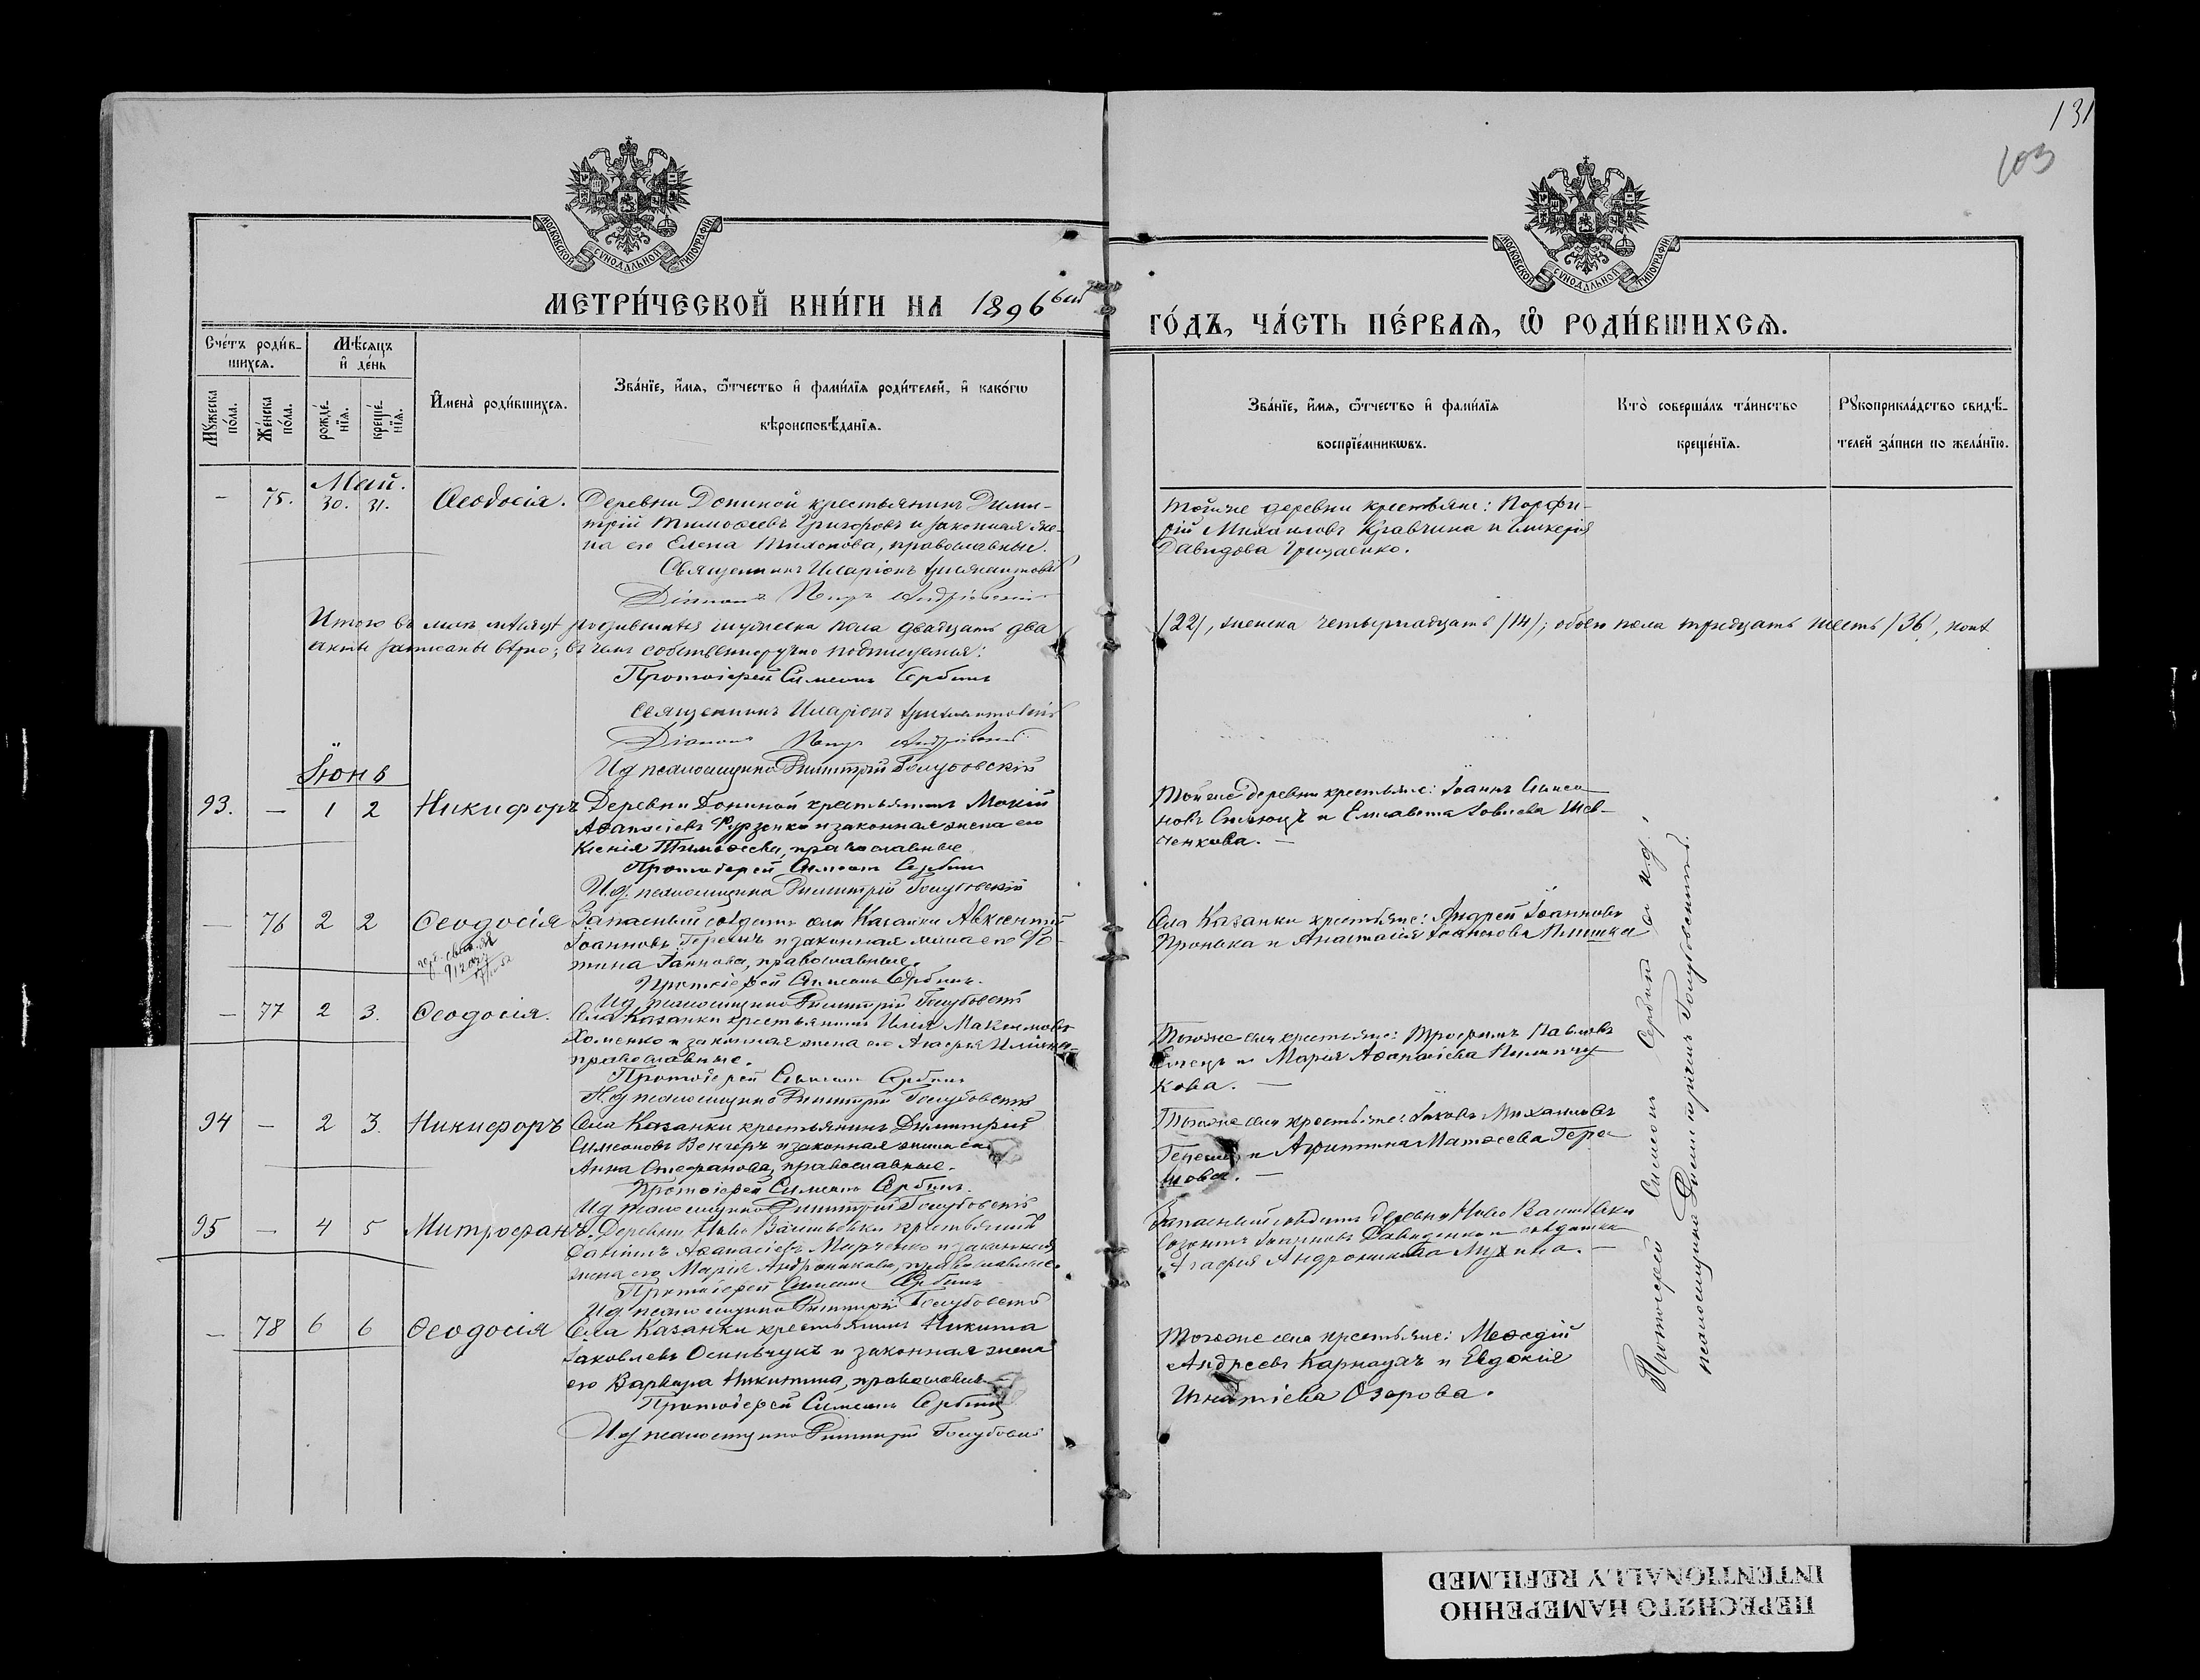 131
103
МОСКОВСКОЙ СѴНОДАЛЬНОЙ ТИПОГРАФІИ
МОСКОВСКОЙ СѴНОДАЛЬНОЙ ТИПОГРАФІИ
МЕТРИ́ЧЕСКОЙ КНИ́ГИ НА 1896
ГО́ДЪ, ЧА́СТЬ ПЕ́РВАЯ, Ѽ РОДИ́ВШИХСЯ.
Сче́тъ роди́в-
шихся.
Мѣ́сяцъ
и҆ де́нь
Мꙋ́жеска
по́ла.
Же́нска
по́ла.
рожде́-
нїя.
креще́-
нїя.
И҆мена̀ роди́вшихся.
Зва́нїе, и҆́мя, ѻ҆́тчество и҆ фами́лїя роди́телей, и҆ како́гѡ
вѣроисповѣ́данїя.
Зва́нїе, и҆́мя, ѻ҆́тчество и҆ фами́лїя
воспрїе́мникѡвъ.
Кто̀ соверша́лъ та́инство
креще́нїя.
Рꙋкоприкла́дство свидѣ́-
телей за́писи по жела́нїю.
Май.
— 75. 30. 31. Ѳеодосія. Деревни Дониной крестьянинъ Дими-
трій Тимоѳеевъ Григоровъ и законная же-
на его Елена Тихонова, православные.
Священникъ Иларіонъ
Діаконъ Петръ
Тойже деревни крестьяне: Порфи-
рій Михаиловъ Кравчина и Гликерія
Давидова Гриценко.
Итого въ маѣ мѣсяцѣ родившихся мужеска пола двадцать два /22/, женска четырнадцать /14/; обоего пола тридцать шесть /36/, коихъ
акты записаны вѣрно; въ чемъ собственноручно подписуемся:
Протоіерей Симеонъ Сербинъ
Священникъ Иларіонъ
Діаконъ Петръ
Ид псаломщика Димитрій Голубовскій
Іюнь
93. — 1 2 Никифоръ Деревни Дониной крестьянинъ Мокій
Аѳанасіевъ Фурзенко и законная жена его
Ксенія Тимоѳеева, православные
Протоіерей Симеонъ Сербинъ
И.д. псаломщика Димитрій Голубовскій
Тойже деревни крестьяне: Іоаннъ Симео
новъ и Елисавета Іовлева Шев-
ченкова. —
— 76 2 2 Ѳеодосія Запасный солдатъ села Казанки Авксентій
Іоанновъ и законная жена его Фо-
тина Іаннова, православные.
Протоіерей Симеонъ Сербинъ.
Ид псаломщика Димитрій Голубовскій
Села Казанки крестьяне: Андрей Іоанновъ
Пронька и Анастасія
— 77 2 3. Ѳеодосія. Села Казанки крестьянинъ Илія Максимовъ
Хоменко и законная жена его Агаѳія
православные.
Протоіерей Симеонъ Сербинъ
И.д псаломщика Димитрій Голубовскій
Тогоже села крестьяне: Трофимъ Павловъ
и Марія Аѳанасіева
кова. —
94 — 2 3. Никифоръ Села Казанки крестьянинъ Димитрій
Симеоновъ Венгеръ и законная жена его
Анна Стефанова, православные.
Протоіерей Симеонъ Сербинъ.
Ид псаломщика Димитрій Голубовскій
Тогоже села крестьяне: Іаковъ Михаиловъ
и Агриппина Матѳеева Гере-
шова. —
95 — 4 5 Митрофанъ. Деревни Ново Васильевки крестьянинъ
Савінъ Аѳанасіевъ Марченко и законная
жена его Марія Андроникова, православные.
Протоіерей Симеонъ Сербинъ
Ид псаломщика Димитрій Голубовскій
Запасный солдатъ деревни Ново Васильевки
Созонтъ Іоанновъ Давиденко и солдатка
Агаѳія Андроникова —
— 78 6 6 Ѳеодосія Села Казанки крестьянинъ Никита
Іаковлевъ Осипчукъ и законная жена
его Варвара Никитина, православн—
Протоіерей Симеонъ Сербинъ
И.д псаломщика Димитрій Голубовскій
Тогоже села крестьяне: Меѳодій
Андреевъ Карнаухъ и Евдокія
Игнатіева Озерова.
Протоіерей Симеонъ Сербинъ съ и.д.
псаломщика Димитріемъ Голубовскимъ.
ПЕРЕСНЯТО НАМЕРЕННО
INTENTIONALLY REFILMED